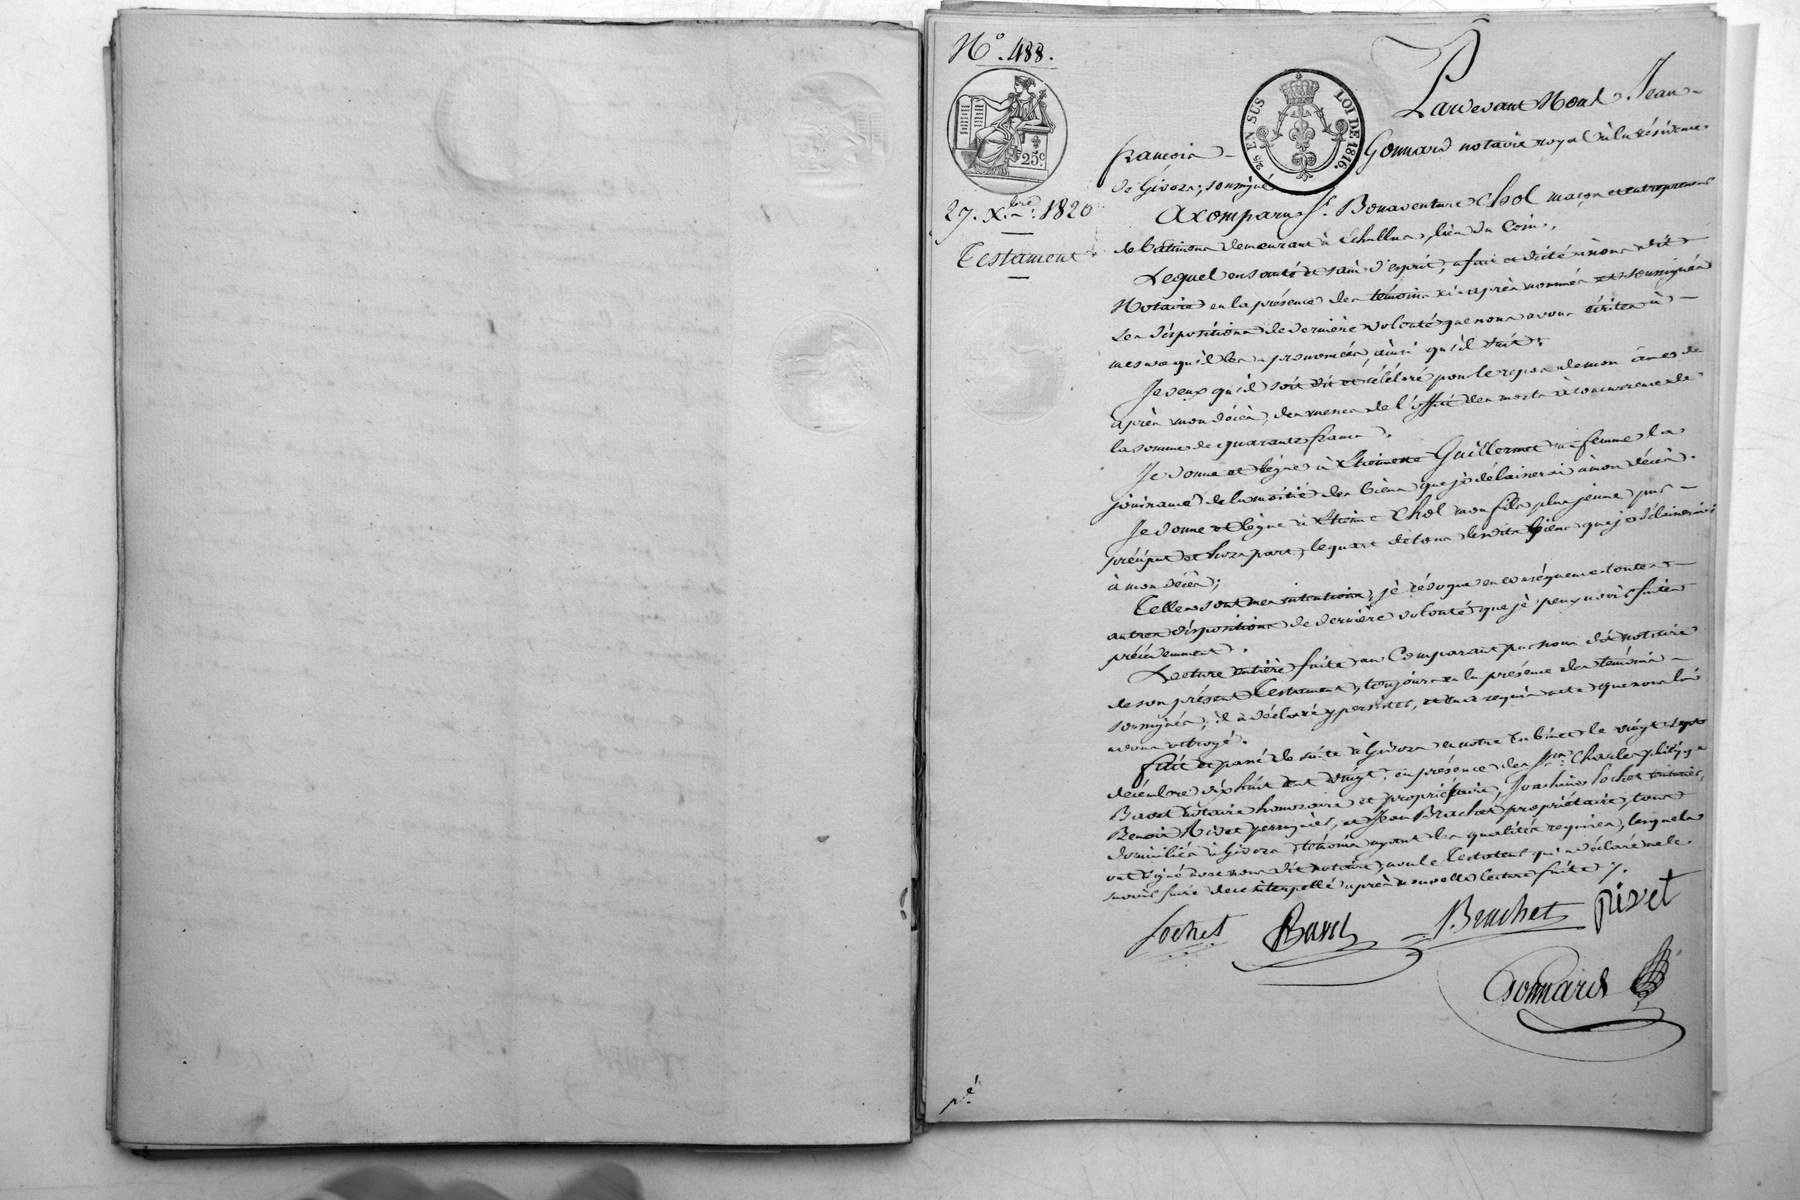 N.° 488.
25 c.
2/5 EN SUS LOI DE 1816.
27. Xbre. 1820
Testament
Pardevant Nous Jean-
françois Gonnard notaire royal à la résidence
de Givors, soussigné
A comparu Sr. Bonaventure Chol maçon et entrepreneur
de bâtimens demeurant à Echallas, lieu du Coin,
Lequel en santé et sain d'esprit, a fait et dicté à nous dit
Notaire en la présence des témoins ci-après nommés et soussignés
ses dispositions de dernière volonté que nous avons écrites à
mesure qu'il les a prononcées, ainsi qu'il suit;
Je veux qu'il soit dit et célébré pour le repos de mon âme
après mon décès, des messes de l'office des morts à concurrence de
la somme de quarante francs.
Je donne et lègue à Guillermet ma femme la
jouissance de la moitié des biens que je délaisserai à mon décès.
Je donne et lègue à Chol mon fils plus jeune par
préciput et hors part, le quart de tous lesdits biens que je délaisserai
à mon décès;
Telles sont mes intentions, je révoque en conséquence toutes
autres dispositions de dernière volonté que je peux avoir faites
précédemment.
Lecture entière faite au Comparant par nous dit notaire
de son présent Testament, toujours en la présence des témoins
soussignés, il a déclaré y persister, et en a requis acte que nous lui
avons octroyé.
fait et passé de suite à Givors en notre Cabinet le vingt sept
décembre dix huit cent vingt, en présence des Srs. Charles philippe
Basset notaire honoraire et propriétaire, Joachim Lochet
Benoit Rivet perruquier, et Jean Brachet propriétaire, tous
domiciliés à Givors témoins ayant les qualités requises, lesquels
ont signé avec nous dit notaire, non le Testateur qui a déclaré ne le
savoir faire de ce interpellé après nouvelle lecture faite.
Lochet Brachet Rivet
Gonnard